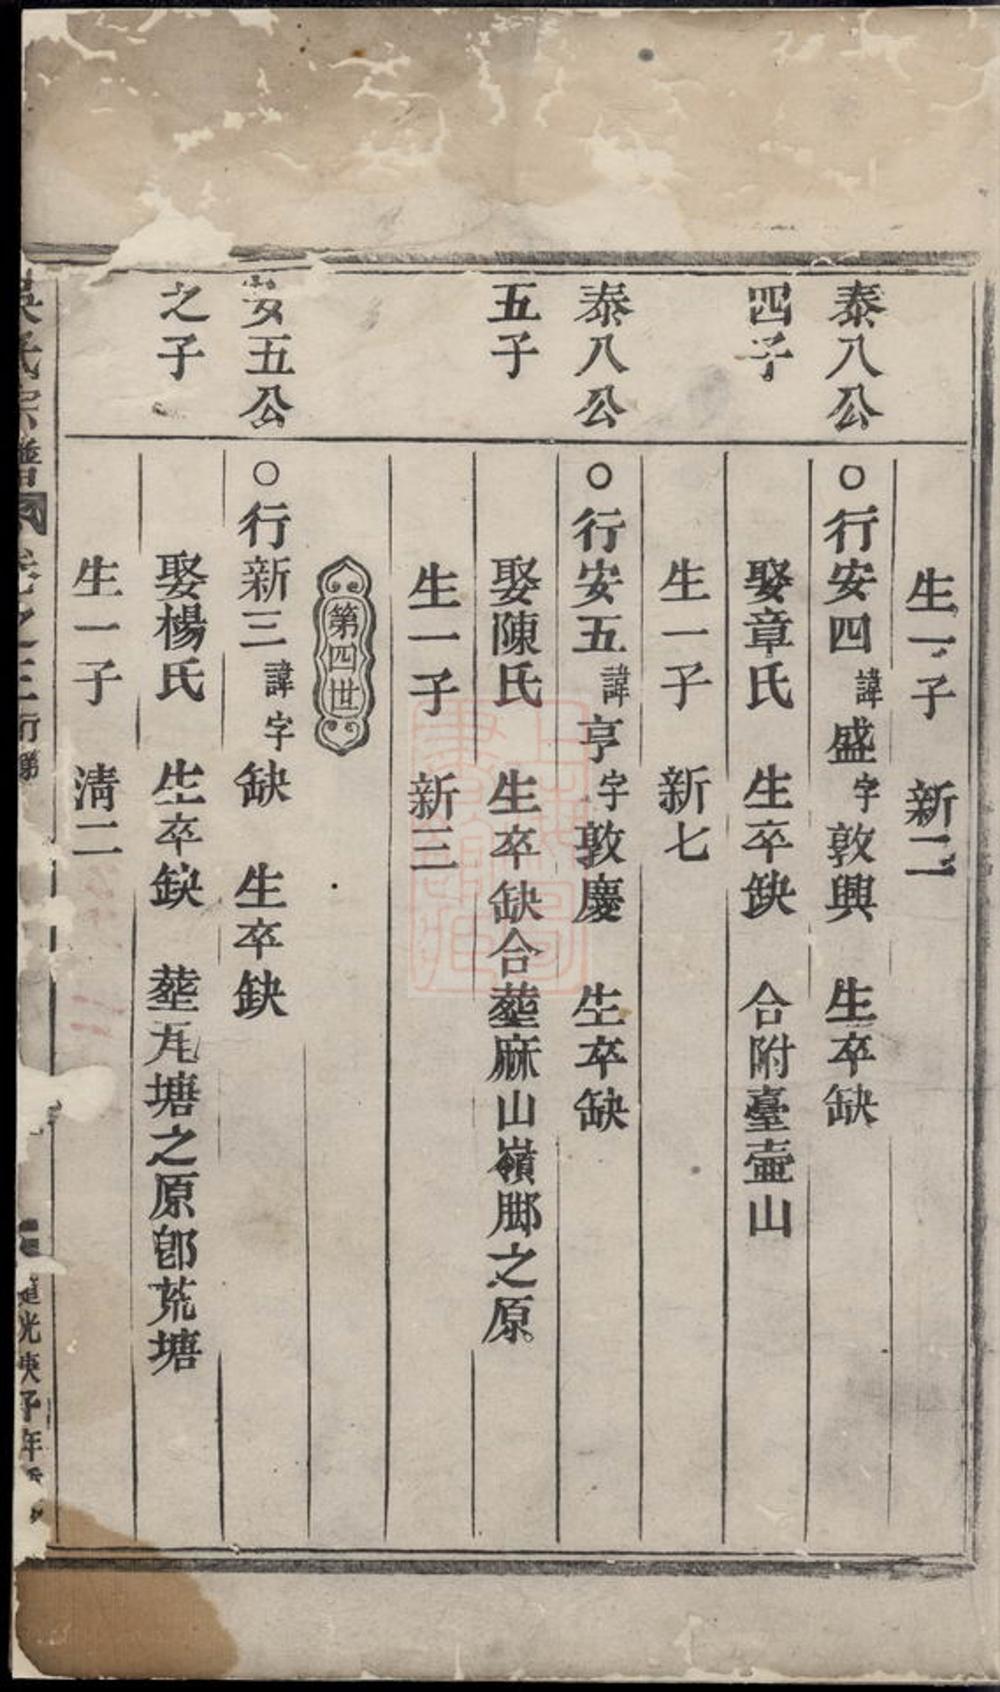 生一子 新二
泰八公 ○行安四 諱盛 字敦興 生卒缺
四子 娶章氏 生卒缺 合附臺壷山
生一子 新七
泰八公 ○行安五 諱亨 字敦慶 生卒缺
五子 娶陳氏 生卒缺合塟麻山嶺脚之原
生一子 新三
第四世
安五公 ○行新三 諱字缺 生卒缺
之子 娶楊氏 生卒缺 塟 塘之原卽荒塘
生一子 淸二
吳氏宗譜 卷之三 行 道光庚子年